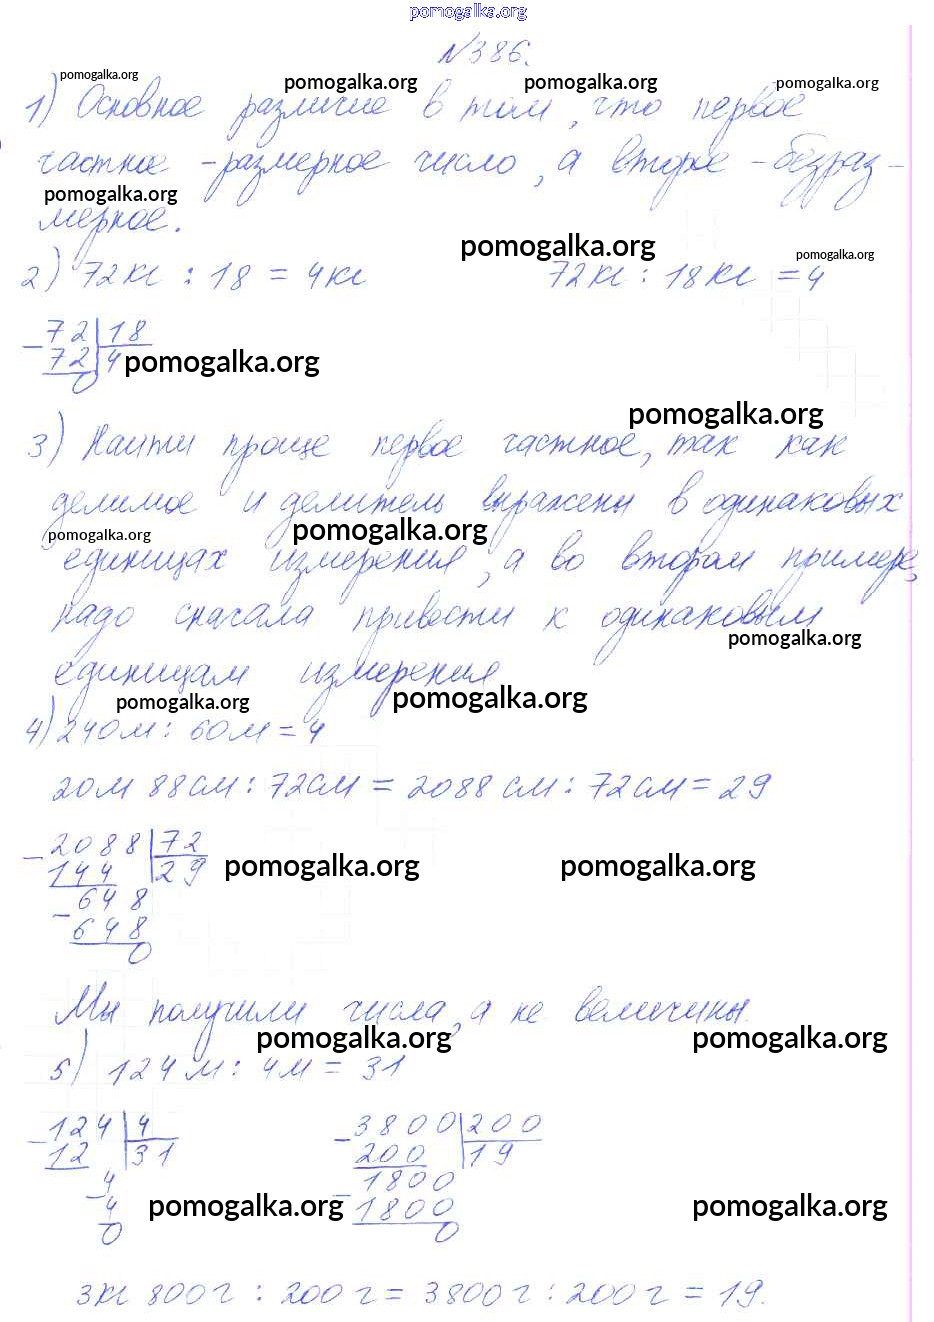 pomogalka.org
№386.
pomogalka.org pomogalka.org pomogalka.org pomogalka.org
1) Основное различие в том, что первое
частное - размерное число, а второе - безраз-
pomogalka.org
мерное.
pomogalka.org pomogalka.org
2) 72кг : 18 = 4кг 72кг : 18кг = 4
72 18
- 72 4 pomogalka.org
0
pomogalka.org
3) Найти проще первое частное, так как
делимое и делитель выражены в одинаковых
pomogalka.org pomogalka.org
единицах измерения, а во втором примере,
надо сначала привести к одинаковым
pomogalka.org
единицам измерения
pomogalka.org pomogalka.org
4) 240м : 60м = 4
20м 88см : 72см = 2088 см : 72см = 29
- 2088 72
144 29 pomogalka.org pomogalka.org
- 648
648
0
Мы получили числа, а не величины.
pomogalka.org pomogalka.org
5) 124м : 4м = 31
- 124 4 - 3800 200
12 31 200 19
- 4 - 1800
4 pomogalka.org 1800 pomogalka.org
0 0
3кг 800г : 200г = 3800г : 200г = 19.